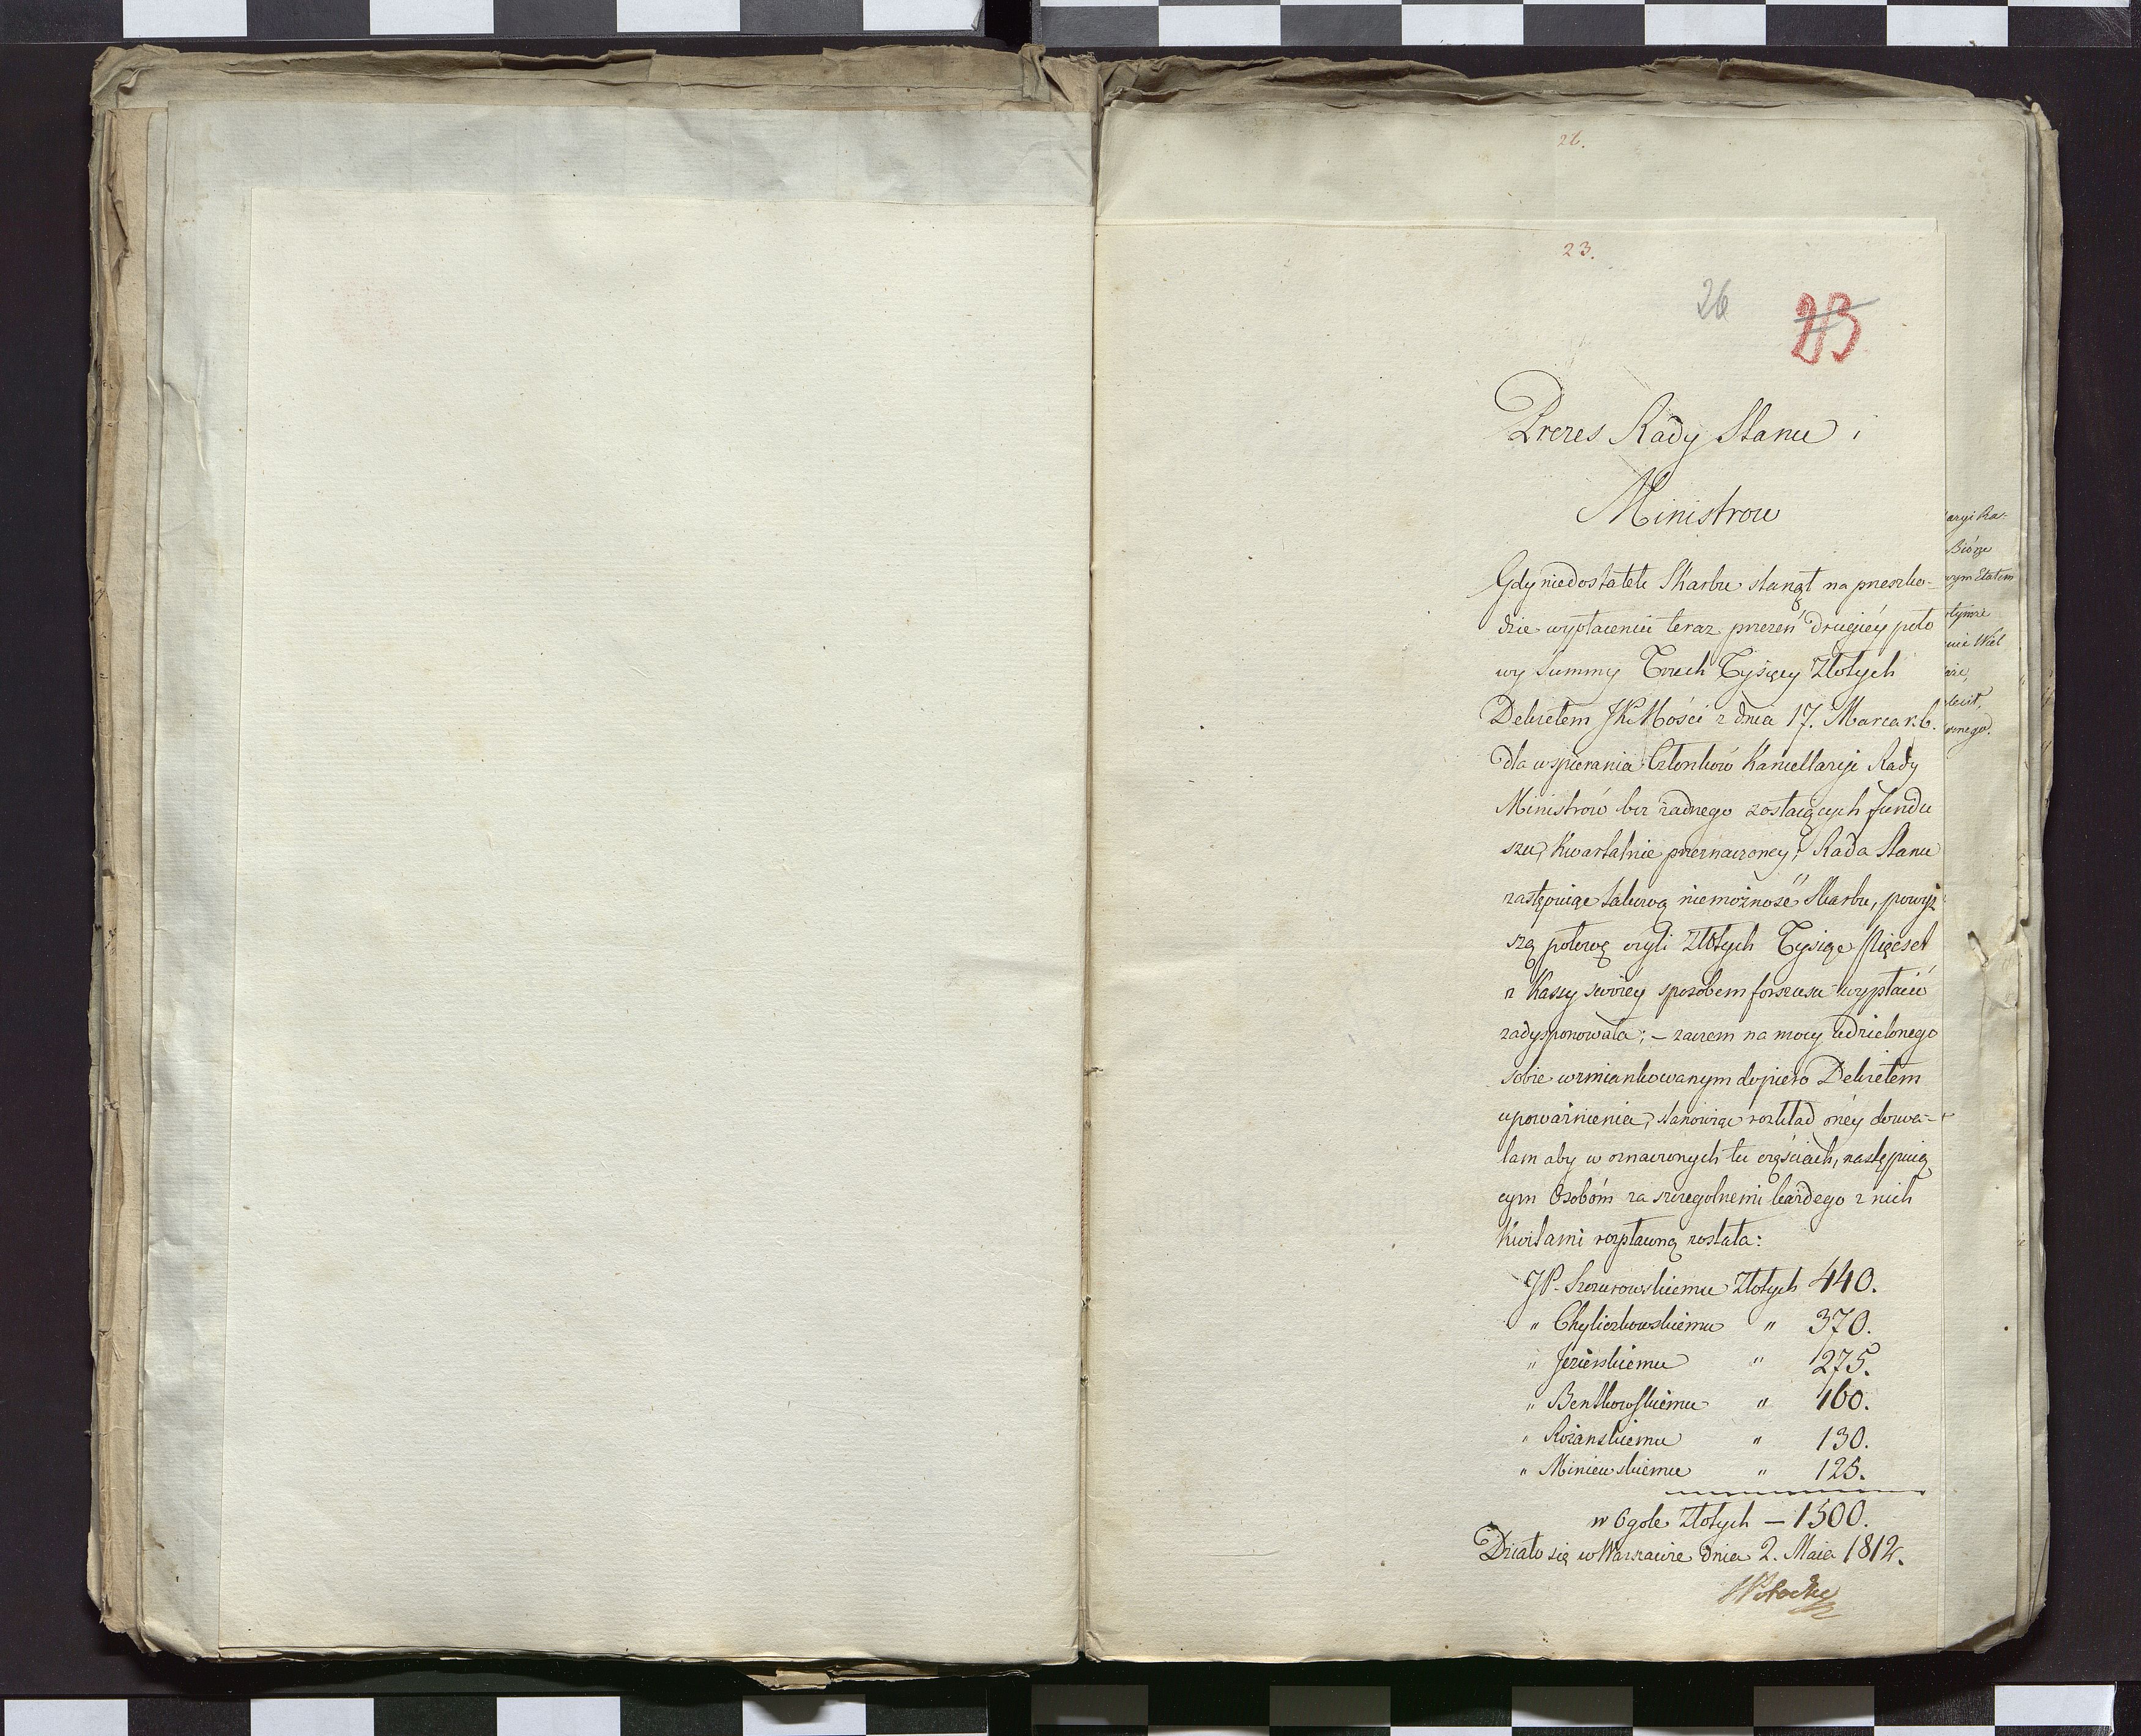 26.
23.
26 23
Prezes Rady Stanu i
Ministrow
Gdy niedostatek Skarbu stanął na przeszko-
dzie wypłaceniu teraz przezeń drugiey poło
wy Summy Trzech Tysięcy Złotych
Dekretem JKMości z dnia 17. Marca r. b.
dla wspierania Członków Kancellaryi Rady
Ministrów bez żadnego zostaiących fundu
szu, kwartalnie przeznaczoney; Rada Stanu
zastępuiąc takową niemożność Skarbu, powyż
szą połowę czyli Złotych Tysiąc Pięćset
z Kassy swoiey sposobem forszusu wypłacić
zadysponowała; – zaczem na mocy udzielonego
sobie wzmiankowanym dopiero Dekretem
upoważnienia, stanowiąc rozkład oney dozwa-
lam aby w oznaczonych tu częściach, następuią
cym Osobóm za szczegolnemi każdego z nich
Kwitami rozpłaconą została:
JP. Szczurowskiemu Złotych 440.
" Chyliczkowskiemu " 370.
" Jezierskiemu " 275.
" Bentkowskiemu " 160.
" Rożanskiemu " 130.
" Miniewskiemu " 125.
w Ogole Złotych – 1500.
Działo się w Warszawie dnia 2. Maia 1812.
SPotocki